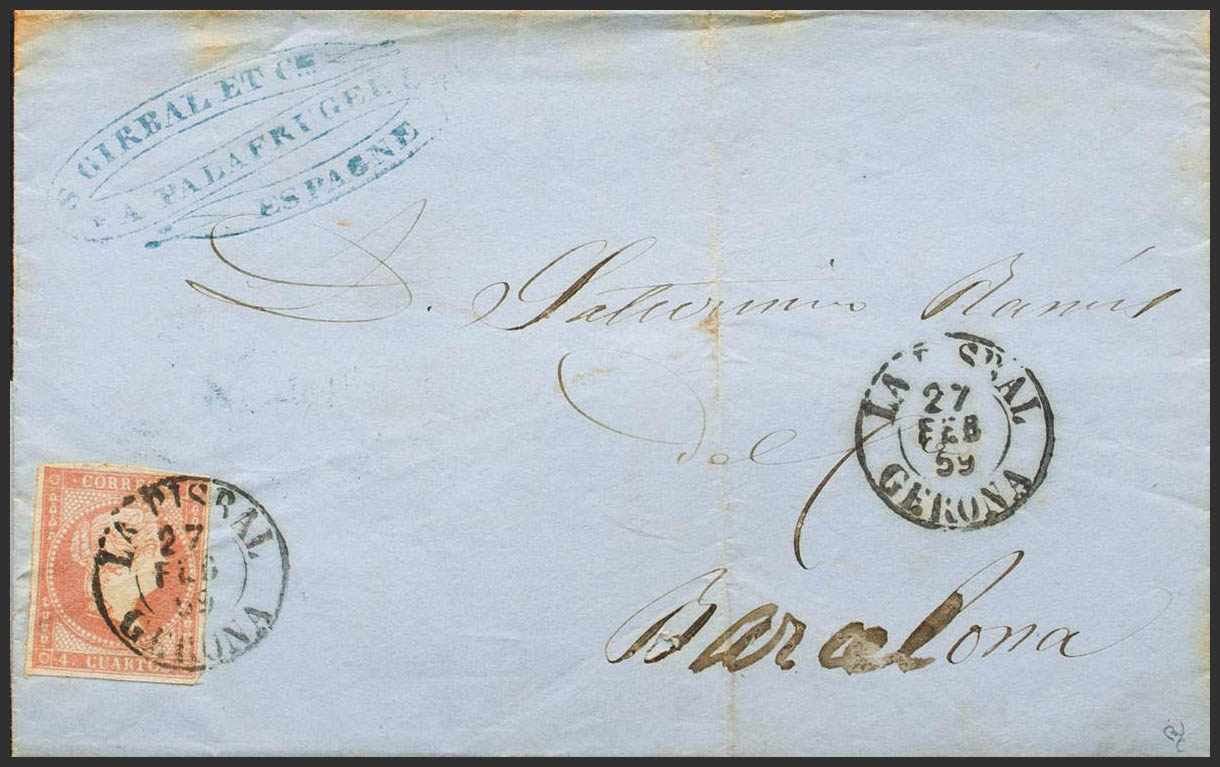 S GIRBAL ET Cie
A PALAFRUGELL
ESPAGNE
D. Saturnino Ramis
LA BISBAL
27
FEB
59
GERONA
del
Barcelona
CORREOS
LA BISBAL
27
FEB
59
GERONA
4 CUARTOS